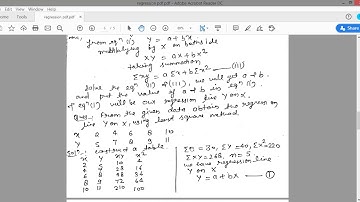 regression pdf.pdf - Adobe Acrobat Reader DC
from eqn (i) Y = a + bx
multiplying by X on both side
XY = ax + bx²
taking summation
Σxy = aΣx + bΣx² — (iii)
Solve the eqn (ii) & (iii), we will get a & b.
and put the value of a & b in eqn (i)
eqn (i) will be our regression line Y on X.
From the given data obtain the regression
line Y on X, using least square method
X 2 4 6 8 10
Y 5 7 8 9 11
construct a table
x y xy x²
2 5 10 4
4 7 28 16
6 8 48 36
8 9 72 64
10 11 110 100
Σx = 30, Σy = 40, Σx² = 220
Σxy = 268, n = 5
regression line
Y on X
Y = a + bx — (1)